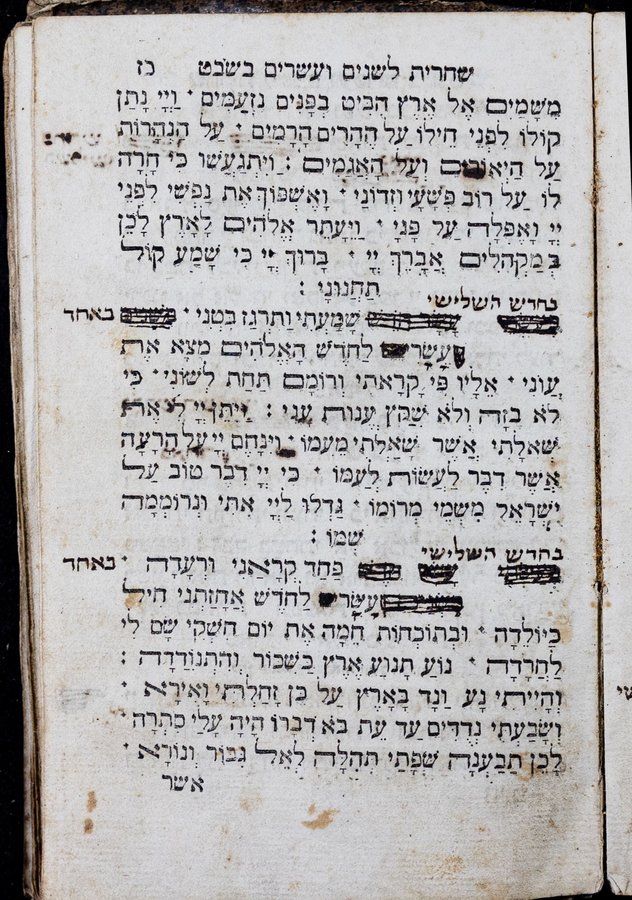 שחרית לשנים ועשרים בשבט כז
מִשָּׁמַיִם אֶל אֶרֶץ הִבִּיט בְּפָנִים נִזְעָמִים · וַיְיָ נָתַן
קוֹלוֹ לִפְנֵי חֵילוֹ עַל הֶהָרִים הָרָמִים · עַל הַנְּהָרוֹת
עַל הַיְאוֹרִים וְעַל הָאֲגַמִּים : וַיִּתְגָּעֲשׁוּ כִּי חָרָה
לוֹ עַל רוֹב פְּשָׁעַי וּזְדוֹנַי · וָאֶשְׁפּוֹךְ אֶת נַפְשִׁי לִפְנֵי
יְיָ וָאֶפְּלָה עַל פָּנַי · וַיֵּעָתֵר אֱלֹהִים לָאָרֶץ לָכֵן
בְּמַקְהֵלִים אֲבָרֵךְ יְיָ · בָּרוּךְ יְיָ כִּי שָׁמַע קוֹל
תַּחֲנוּנַי :
בחדש השלישי
שָׁמַעְתִּי וַתִּרְגַּז בִּטְנִי · באחד
עָשָׂר לַחֹדֶשׁ הָאֱלֹהִים מָצָא אֶת
עֲוֹנִי · אֵלָיו פִּי קָרָאתִי וְרוֹמָם תַּחַת לְשׁוֹנִי · כִּי
לֹא בָזָה וְלֹא שִׁקַּץ עֱנוּת עָנִי : וַיִּתֵּן יְיָ לִי אֶת
שְׁאֵלָתִי אֲשֶׁר שָׁאַלְתִּי מֵעִמּוֹ · וַיִּנָּחֶם יְיָ עַל הָרָעָה
אֲשֶׁר דִּבֶּר לַעֲשׂוֹת לְעַמּוֹ · כִּי יְיָ דִּבֶּר טוֹב עַל
יִשְׂרָאֵל מִשְּׁמֵי מְרוֹמוֹ · גַּדְּלוּ לַיְיָ אִתִּי וּנְרוֹמְמָה
שְׁמוֹ :
בחדש השלישי
פַּחַד קְרָאַנִי וּרְעָדָה · באחד
עָשָׂר לַחֹדֶשׁ אֲחָזַתְנִי חִיל
כַּיּוֹלֵדָה · וּבְתוֹכְחוֹת חֵמָה אֶת יוֹם חִשְׁקִי שָׂם לִי
לַחֲרָדָה · נוֹעַ תָּנוּעַ אֶרֶץ כַּשִּׁכּוֹר וְהִתְנוֹדְדָה :
וְהָיִיתִי נָע וָנָד בָּאָרֶץ עַל כֵּן זָחַלְתִּי וָאִירָא ·
וְשָׂבַעְתִּי נְדֻדִים עַד עֵת בֹּא דְבָרוֹ הָיָה עָלַי סִתְרָה ·
לָכֵן תַּבַּעְנָה שְׂפָתַי תְּהִלָּה לְאֵל גִּבּוֹר וְנוֹרָא ·
אשר